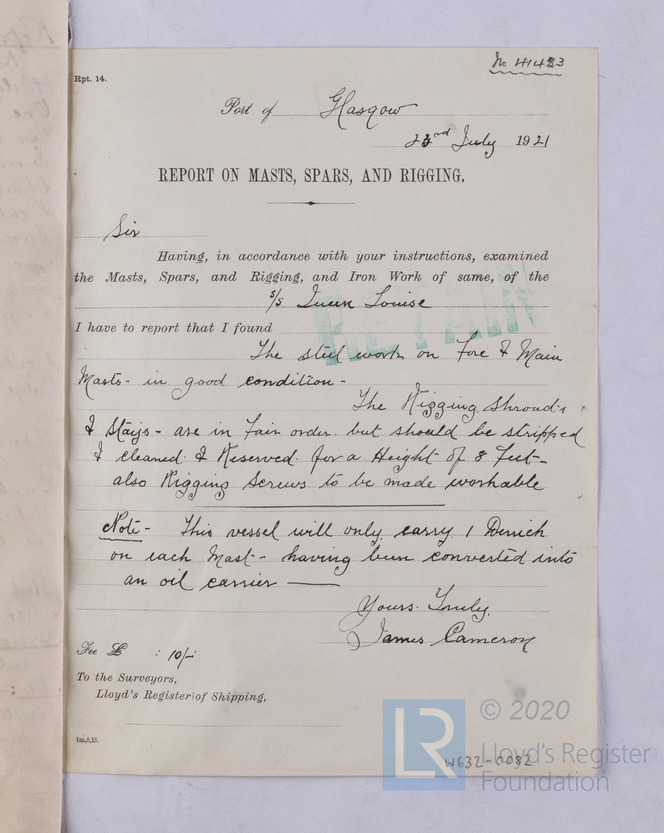 No 41423
Rpt. 14.
Port of Glasgow
23nd July 1921
REPORT ON MASTS, SPARS, AND RIGGING.
Sir
Having, in accordance with your instructions, examined
the Masts, Spars, and Rigging, and Iron Work of same, of the
s/s Queen Louise
RETAIN
I have to report that I found
The steel work on Fore & Main
Masts - in good condition -
The Rigging Shrouds
& Stays - are in Fair order but should be stripped
& cleaned & Reserved for a Height of 8 Feet -
also Rigging Screws to be made workable
Note - This vessel will only carry 1 Derrick
on each Mast - having been converted into
an oil carrier
Yours Truly
James Cameron
Fee £ : 10/-
To the Surveyors,
Lloyd's Register of Shipping,
1m,8,15.
LR © 2020
Lloyd's Register
Foundation
W632-0082